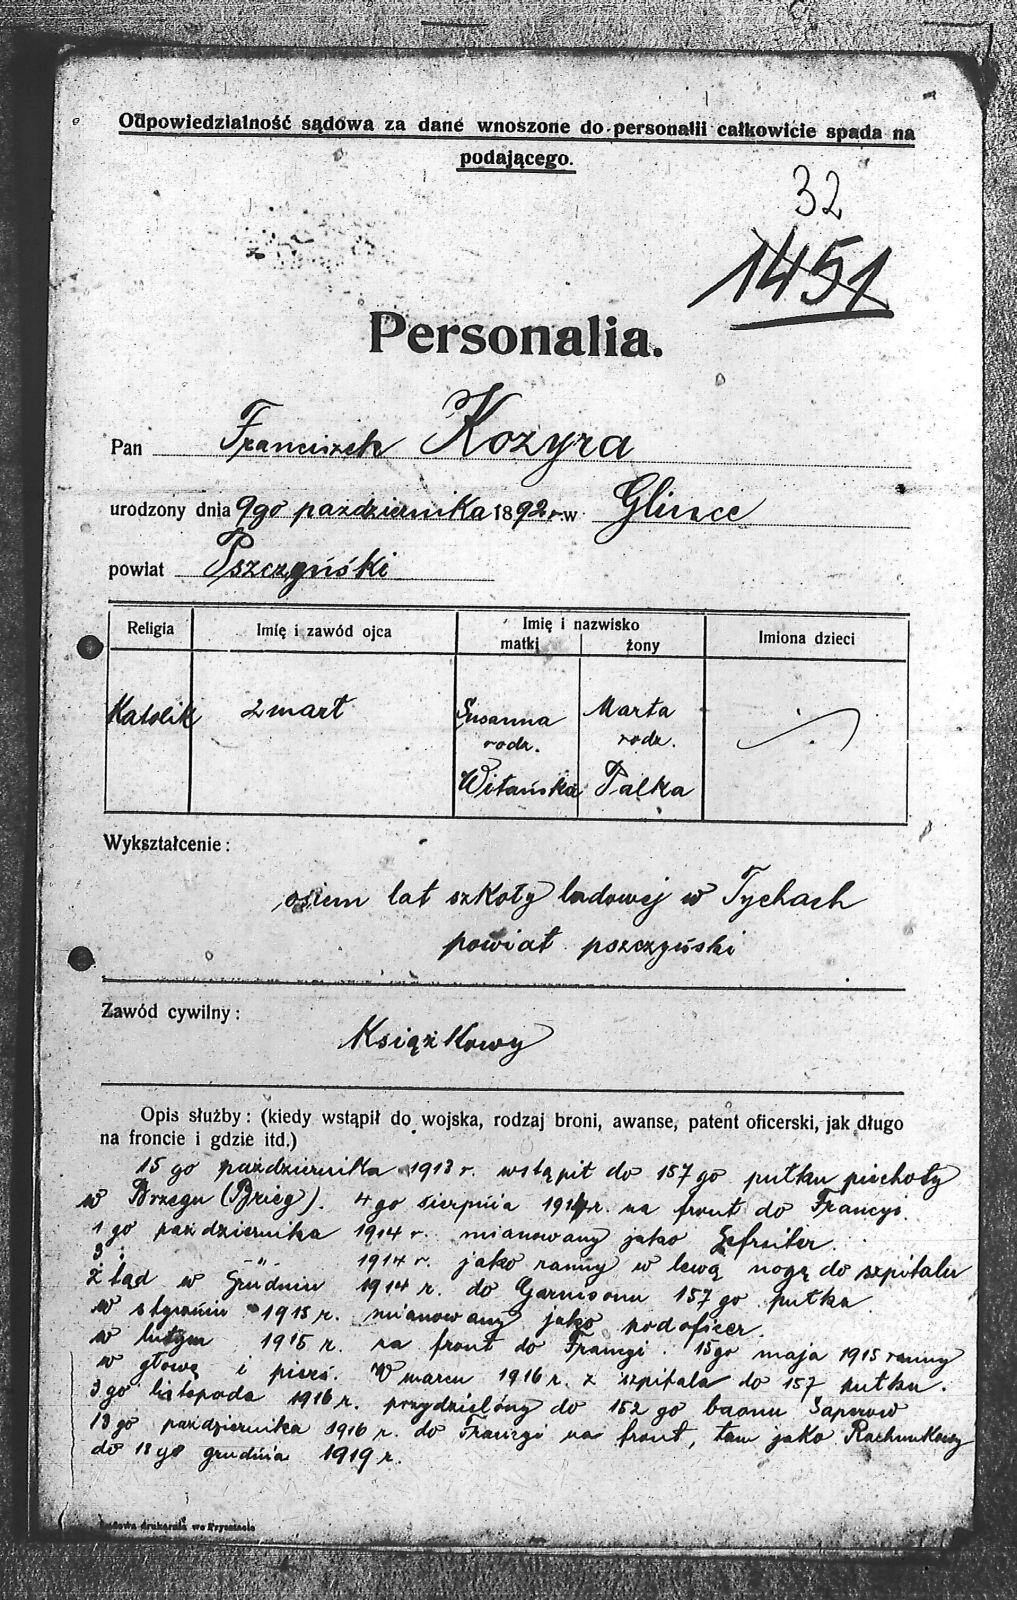 Odpowiedzialność sądowa za dane wnoszone do personalii całkowicie spada na
podającego.
32
1451
Personalia.
Pan Franciszek Kozyra
urodzony dnia 9go października 1892 r. w Glince
powiat Pszczyński
Religia Imię i zawód ojca Imię i nazwisko Imiona dzieci
matki żony
Katolik zmart Susanna Marta
rodz. rodz.
Witańska Palka
Wykształcenie:
osiem lat szkoły ludowej w Tychach
powiat pszczyński
Zawód cywilny:
Książkowy
Opis służby: (kiedy wstąpił do wojska, rodzaj broni, awanse, patent oficerski, jak długo
na froncie i gdzie itd.)
15 go października 1913 r. wstąpił do 157 go pułku piechoty
w Brzegu (Brieg). 4 go sierpnia 1914 r. na front do Francyi.
1 go października 1914 r. mianowany jako Gefreiter.
3. -"- 1914 r. jako ranny w lewą nogę do szpitalu
Ztąd w Grudniu 1914 r. do Garnisonu 157 go pułku
w styczniu 1915 r. mianowany jako podoficer.
w lutym 1915 r. na front do Francyi. 15go maja 1915 ranny
w głowę i pierś. W marcu 1916 r. z szpitala do 157 pułku.
3 go listopada 1916 r. przydzielony do 152 go baonu Saperów
18 go października 1916 r. do Francyi na front, tam jako Rachunkowy
do 18 go grudnia 1919 r.
drukarnia we Frysztacie